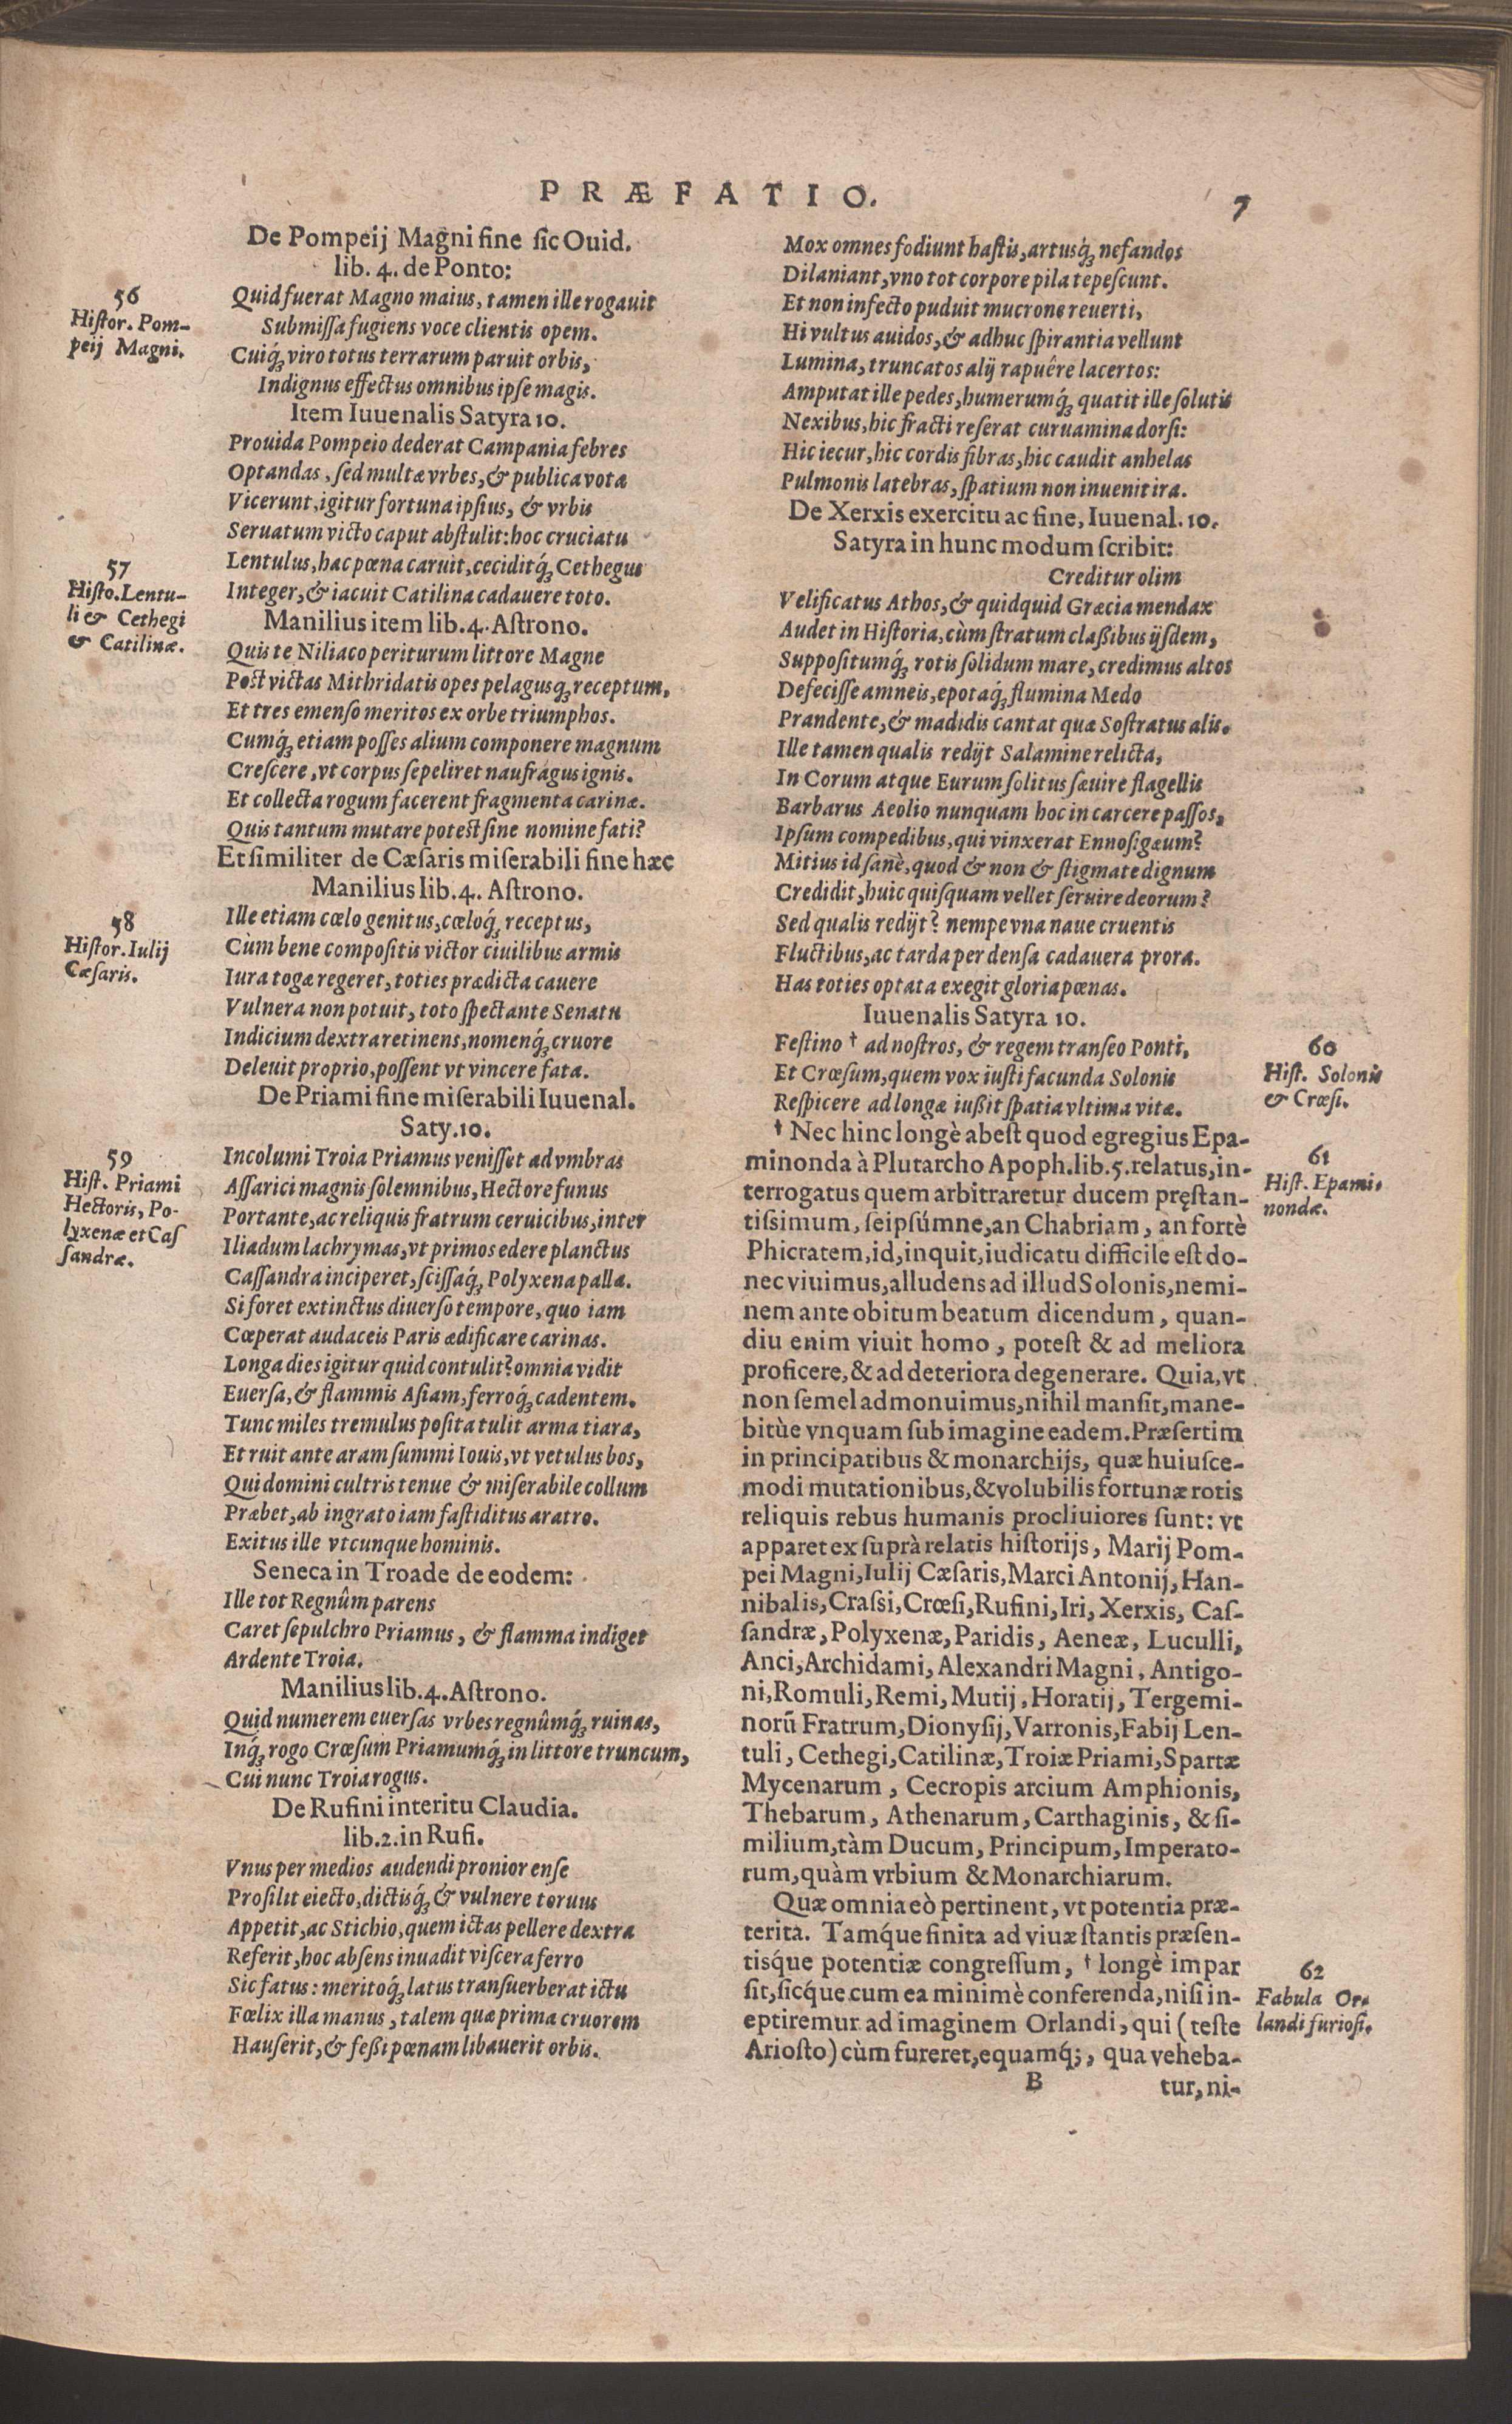 PRÆFATIO.
7
De Pompeij Magni fine ſic Ouid.
lib. 4. de Ponto:
56
Hiſtor. Pom-
peij Magni.
Quid fuerat Magno maius, tamen ille rogauit
Submiſſa fugiens voce clientis opem.
Cuiq́ꝫ viro totus terrarum paruit orbis,
Indignus effectus omnibus ipſe magis.
Item Iuuenalis Satyra 10.
Prouida Pompeio dederat Campania febres
Optandas, ſed multæ vrbes, & publica vota
Vicerunt, igitur fortuna ipſius, & vrbis
Seruatum victo caput abſtulit: hoc cruciatu
57
Hiſto. Lentu-
li & Cethegi
& Catilinæ.
Lentulus, hac pœna caruit, ceciditq́ꝫ Cethegus
Integer, & iacuit Catilina cadauere toto.
Manilius item lib. 4. Aſtrono.
Quis te Niliaco periturum littore Magne
Poſt victas Mithridatis opes pelagusq́ꝫ receptum,
Et tres emenſo meritos ex orbe triumphos.
Cumq́ꝫ etiam poſſes alium componere magnum
Creſcere, vt corpus ſepeliret naufragus ignis.
Et collecta rogum facerent fragmenta carinæ.
Quis tantum mutare poteſt ſine nomine fati?
Et ſimiliter de Cæſaris miſerabili fine hæc
Manilius lib. 4. Aſtrono.
58
Hiſtor. Iulij
Cæſaris.
Ille etiam cœlo genitus, cœloq́ꝫ receptus,
Cùm bene compoſitis victor ciuilibus armis
Iura togæ regeret, toties prædicta cauere
Vulnera non potuit, toto ſpectante Senatu
Indicium dextra retinens, nomenq́ꝫ cruore
Deleuit proprio, poſſent vt vincere fata.
De Priami fine miſerabili Iuuenal.
Saty. 10.
59
Hiſt. Priami
Hectoris, Po-
lyxenæ et Caſ
ſandræ.
Incolumi Troia Priamus veniſſet ad vmbras
Aſſarici magnis ſolemnibus, Hectore funus
Portante, ac reliquis fratrum ceruicibus, inter
Iliadum lachrymas, vt primos edere planctus
Caſſandra inciperet, ſciſſaq́ꝫ Polyxena palla.
Si foret extinctus diuerſo tempore, quo iam
Cœperat audaceis Paris ædificare carinas.
Longa dies igitur quid contulit? omnia vidit
Euerſa, & flammis Aſiam, ferroq́ꝫ cadentem.
Tunc miles tremulus poſita tulit arma tiara,
Et ruit ante aram ſummi Iouis, vt vetulus bos,
Qui domini cultris tenue & miſerabile collum
Præbet, ab ingrato iam faſtiditus aratro.
Exitus ille vtcunque hominis.
Seneca in Troade de eodem:
Ille tot Regnûm parens
Caret ſepulchro Priamus, & flamma indiget
Ardente Troia.
Manilius lib. 4. Aſtrono.
Quid numerem euerſas vrbes regnûmq́ꝫ ruinas,
Inq́ꝫ rogo Crœſum Priamumq́ꝫ in littore truncum,
Cui nunc Troia rogus.
De Rufini interitu Claudia.
lib. 2. in Rufi.
Vnus per medios audendi pronior enſe
Proſilit eiecto, dictisq́ꝫ & vulnere toruus
Appetit, ac Stichio, quem ictas pellere dextra
Referit, hoc abſens inuadit viſcera ferro
Sic fatus: meritoq́ꝫ latus transuerberat ictu
Fœlix illa manus, talem quæ prima cruorem
Hauſerit, & feßi pœnam libauerit orbis.
Mox omnes fodiunt haſtis, artusq́ꝫ nefandos
Dilaniant, vno tot corpore pila tepeſcunt.
Et non infecto puduit mucrone reuerti,
Hi vultus auidos, & adhuc ſpirantia vellunt
Lumina, truncatos alij rapuêre lacertos:
Amputat ille pedes, humerumq́ꝫ quatit ille ſolutis
Nexibus, hic fracti reſerat curuamina dorſi:
Hic iecur, hic cordis fibras, hic caudit anhelas
Pulmonis latebras, ſpatium non inuenit ira.
De Xerxis exercitu ac fine, Iuuenal. 10.
Satyra in hunc modum ſcribit:
Creditur olim
Velificatus Athos, & quidquid Græcia mendax
Audet in Hiſtoria, cùm ſtratum claßibus ijſdem,
Suppoſitumq́ꝫ rotis ſolidum mare, credimus altos
Defeciſſe amneis, epotaq́ꝫ flumina Medo
Prandente, & madidis cantat quæ Soſtratus alis.
Ille tamen qualis redijt Salamine relicta,
In Corum atque Eurum ſolitus ſæuire flagellis
Barbarus Aeolio nunquam hoc in carcere paſſos,
Ipſum compedibus, qui vinxerat Ennoſigæum?
Mitius id ſanè, quod & non & ſtigmate dignum
Credidit, huic quiſquam vellet ſeruire deorum?
Sed qualis redijt? nempe vna naue cruentis
Fluctibus, ac tarda per denſa cadauera prora.
Has toties optata exegit gloria pœnas.
Iuuenalis Satyra 10.
60
Hiſt. Solonis
& Crœſi.
Feſtino † ad noſtros, & regem tranſeo Ponti,
Et Crœſum, quem vox iuſti facunda Solonis
Reſpicere ad longæ iußit ſpatia vltima vitæ.
61
Hiſt. Epami-
nondæ.
† Nec hinc longè abeſt quod egregius Epa-
minonda à Plutarcho Apoph. lib. 5. relatus, in-
terrogatus quem arbitraretur ducem pręſtan-
tiſsimum, ſeipſúmne, an Chabriam, an fortè
Phicratem, id, inquit, iudicatu difficile eſt do-
nec viuimus, alludens ad illud Solonis, nemi-
nem ante obitum beatum dicendum, quan-
diu enim viuit homo, poteſt & ad meliora
proficere, & ad deteriora degenerare. Quia, vt
non ſemel admonuimus, nihil manſit, mane-
bitùe vnquam ſub imagine eadem. Præſertim
in principatibus & monarchijs, quæ huiuſce-
modi mutationibus, & volubilis fortunæ rotis
reliquis rebus humanis procliuiores ſunt: vt
apparet ex ſuprà relatis hiſtorijs, Marij Pom-
pei Magni, Iulij Cæſaris, Marci Antonij, Han-
nibalis, Craſsi, Crœſi, Rufini, Iri, Xerxis, Caſ-
ſandræ, Polyxenæ, Paridis, Aeneæ, Luculli,
Anci, Archidami, Alexandri Magni, Antigo-
ni, Romuli, Remi, Mutij, Horatij, Tergemi-
norũ Fratrum, Dionyſij, Varronis, Fabij Len-
tuli, Cethegi, Catilinæ, Troiæ Priami, Spartæ
Mycenarum, Cecropis arcium Amphionis,
Thebarum, Athenarum, Carthaginis, & ſi-
milium, tàm Ducum, Principum, Imperato-
rum, quàm vrbium & Monarchiarum.
Quæ omnia eò pertinent, vt potentia præ-
terita. Tamq́ue finita ad viuæ ſtantis præſen-
tiſq́ue potentiæ congreſſum, † longè impar
62
Fabula Or-
landi furioſi.
ſit, ſicq́ue cum ea minimè conferenda, niſi in-
eptiremur ad imaginem Orlandi, qui (teſte
Arioſto) cùm fureret, equamq́;, qua veheba-
B
tur, ni-